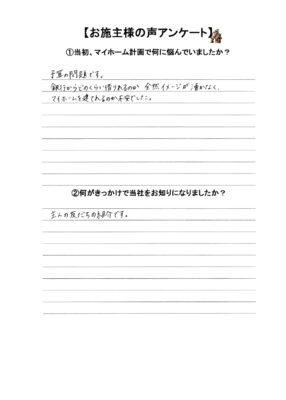 【お施主様の声アンケート】
①当初、マイホーム計画で何に悩んでいましたか？
予算の問題です。
銀行からどのくらい借りれるのか 全然イメージが湧かなく、
マイホームを建てれるのか不安でした。
②何がきっかけで当社をお知りになりましたか？
主人の友だちの紹介です。